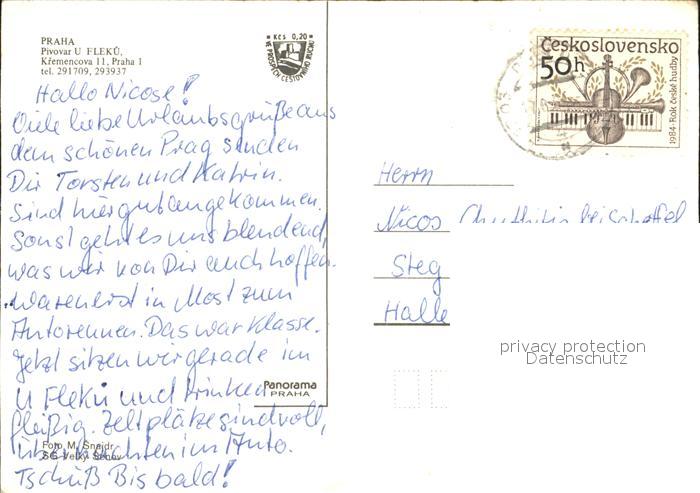 PRAHA
Pivovar U FLEKŮ,
Křemencova 11, Praha 1
tel. 291709, 293937
Kčs 0,20
VE PROSPĚCH CESTOVNÍHO RUCHU
Hallo Nicose!
Viele liebe Urlaubsgrüße aus
dem schönen Prag senden
Dir Torsten und Katrin.
Sind hier gut angekommen.
Sonst geht es uns blendend,
was wir von Dir auch hoffen.
Waren erst in Most zum
Autorennen. Das war Klasse.
Jetzt sitzen wir gerade im
U Flekú und trinken
fleißig. Zeltplätze sind voll,
übernachten im Auto.
Tschüß Bis bald!
Foto M. Šnajdr
Panorama
PRAHA
Československo
50h
1984-Rok české hudby
Herrn
Nicos
Steg
Halle
privacy protection
Datenschutz